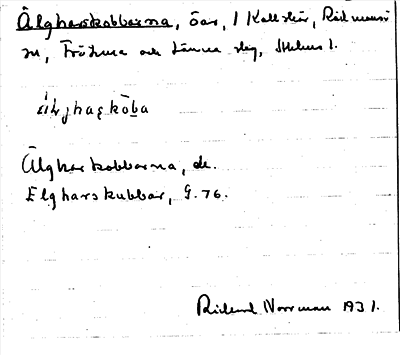 Älgharskobbarna, öar, 1 Kallskär, Rådmansö
sn, Frötuna och Länna slg, Sthlms l.
Älgharskobbarna, de.
Elgharskubbar, G. 76.
Rickard Norrman 1931.